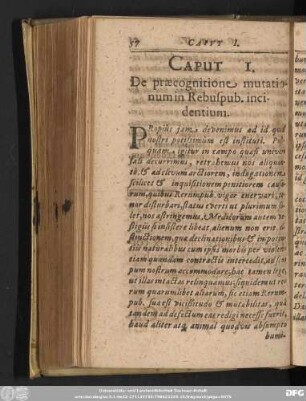 CAPVT I.
CAPUT I.
De præcognitione mutatio-
num in Rebuspub. inci-
dentium.
PRopiùs jam devenimus ad id quod
nostri potissimum est instituti. Po
igitur in campo quasi
decurrimus, retrahemus nos aliquan-
to, & ad clivum arctiorem, indagationem
scilicet & inquisitionem penitiorem causa-
rum, quibus Rerumpub. vigor enervari, te-
nor disturbari, status everti ut plurimum so-
let, nos astringemus. Medicorum autem ve-
stigiis hìc insistere libeat, alienum non erit. Di-
stinctionem, quæ declinationibus & impotẽ-
tiis naturalibus cum ipsis morbis per violen-
tiam quandam contractis intercedit, ad scõ-
pum nostrum accommodare, hoc tamen lege,
ut illas intactas relinquamus; siquidem ut re-
rum quarumlibet aliarum, sic etiam Rerum-
pub. sua est vicissitudo & mutabilitas, quâ
tandem ad defectum eas redigi necesse fuerit,
haud aliter atq; animal quodvis absumpto